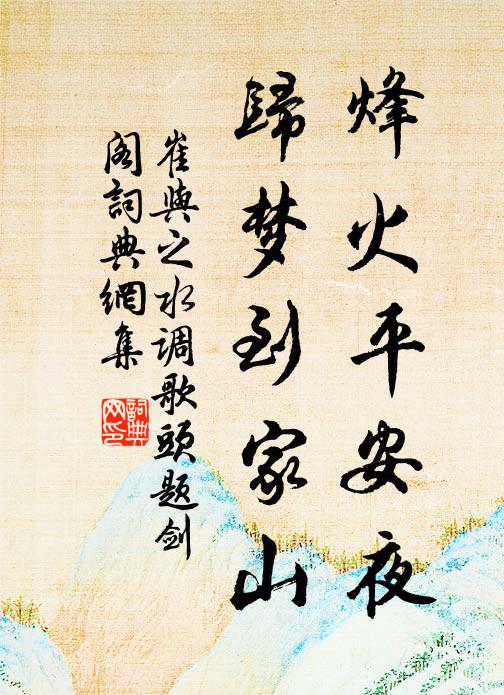 烽火平安夜
歸梦到家山
崔與之水调歌頭题剑
阁詞典網集
詞典
网印